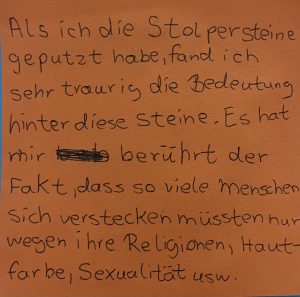 Als ich die Stolpersteine
geputzt habe, fand ich
sehr traurig die Bedeutung
hinter diese Steine. Es hat
mir berührt der
Fakt, dass so viele Menschen
sich verstecken müssten nur
wegen ihre Religionen, Haut-
farbe, Sexualität usw.